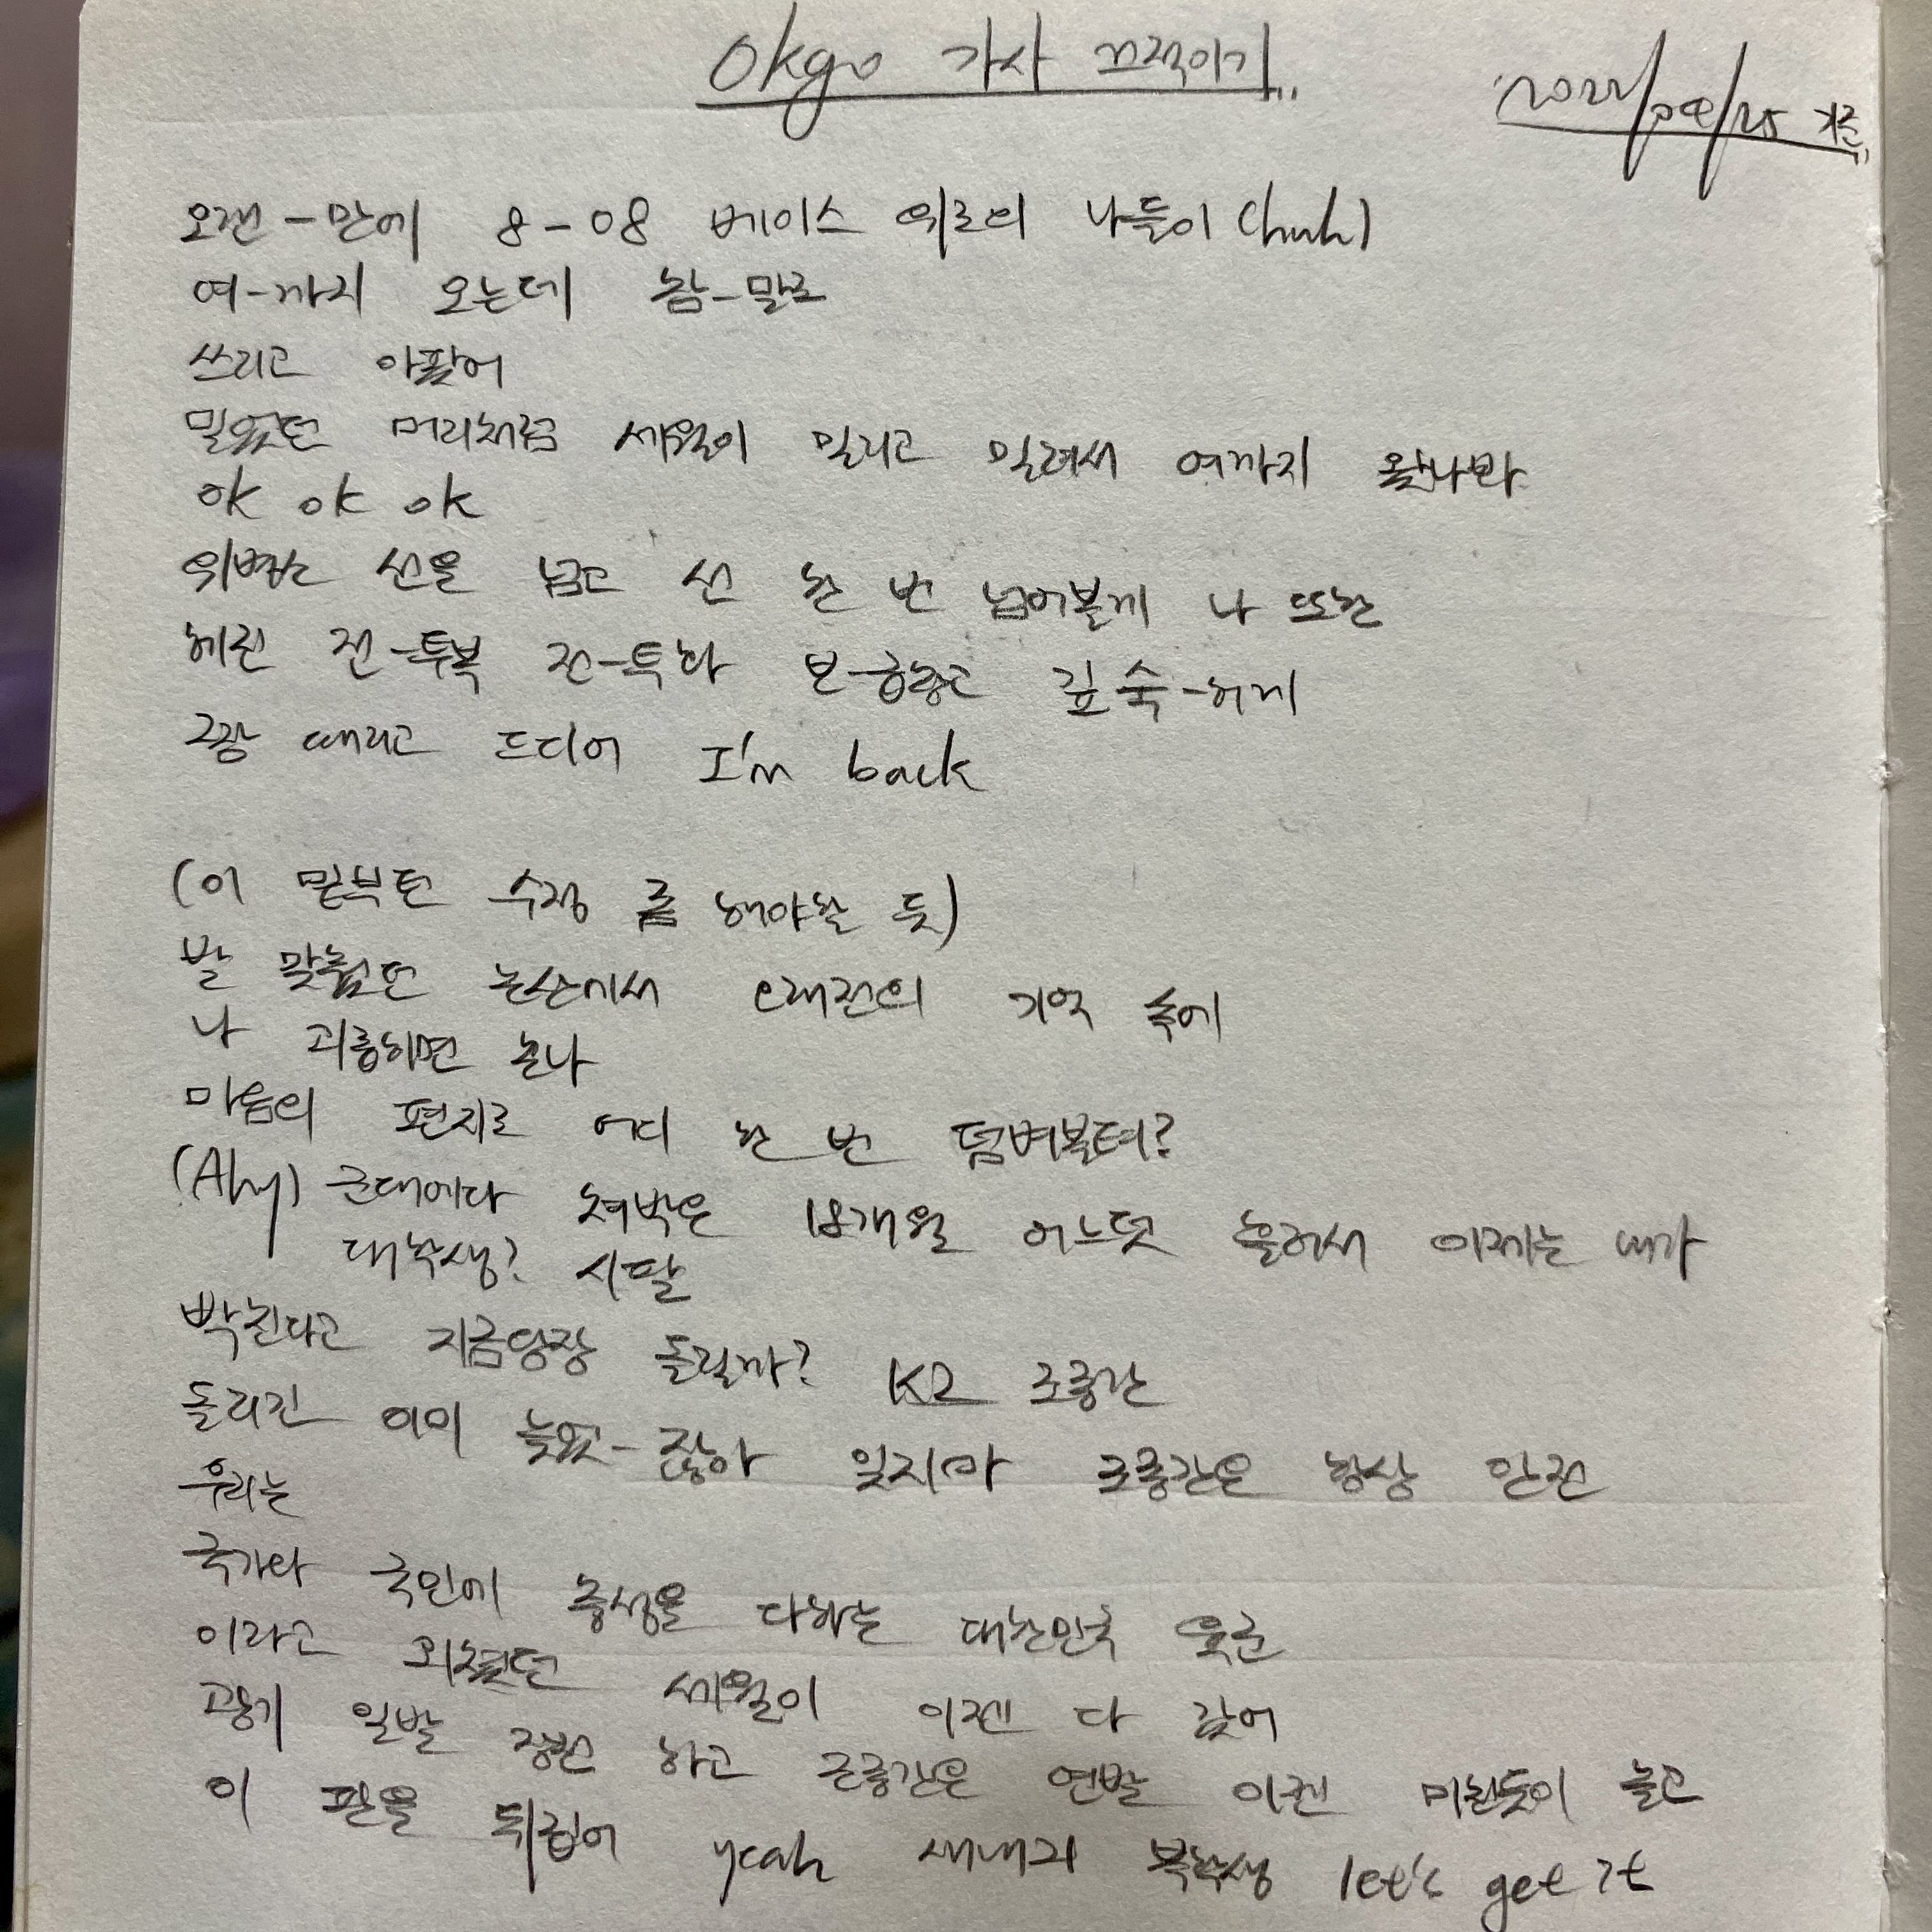 okgo 가사 끄적이기..
2022/08/25 기준..
오랜-만에 8-08 베이스 위로의 나들이 (huh)
여-까지 오는데 참-말로
쓰리고 아팠어
밀었던 머리처럼 세월이 밀리고 밀려서 여까지 왔나봐
ok ok ok
위병은 선을 넘고 선 한 번 넘어볼게 나 또한
헤진 전-투복 전-투화 본-중중 깊숙-하게
꽝 때리고 드디어 I'm back
(이 밑부턴 수정 좀 해야할 듯)
발 맞췄던 논산에서 오래전의 기억 속에
나 괴롭히면 혼나
마음의 편지로 어디 한 번 덤벼볼텨?
(Ahy) 군대에다 쳐박은 18개월 어느덧 흘러서 이제는 내가
대학생? 시팔
빡친다고 지금당장 돌릴까? K2 조종간
돌리긴 이미 늦었-잖아 잊지마 조종간은 항상 안전
우리는
국가와 국민에 충성을 다하는 대한민국 육군
이라고 외쳤던 세월이 이젠 다 갔어
광기 일발 장전 하고 조종간은 연발 이젠 미친듯이 놀고
이 판을 뒤집어 yeah 새내기 복학생 let's get it